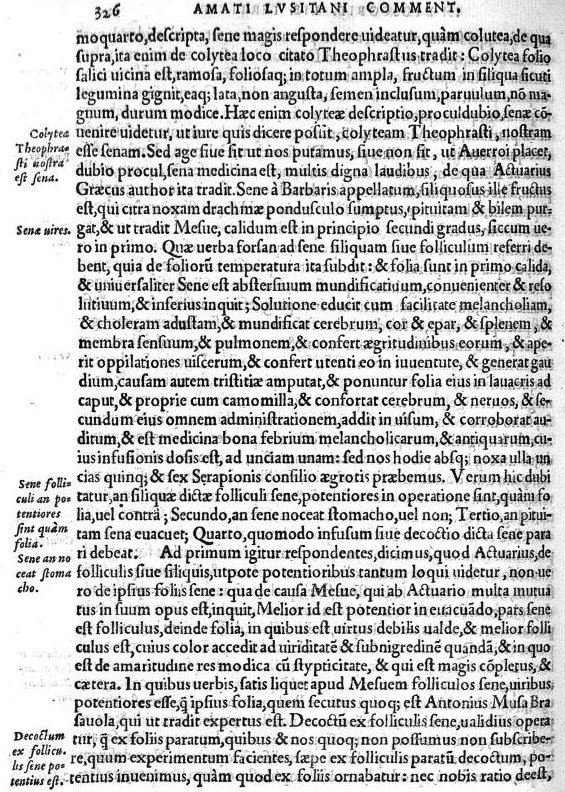 326 AMATI LVSITANI COMMENT.
moquarto,descripta, sene magis respondere uideatur,quàm colutea,de qua
supra,ita enim de colytea loco citato Theophrastus tradit: Colytea folio
salici uicina est,ramosa, foliosaq; in totum ampla, fructum in siliqua sicuti
legumina gignit,eaq; lata,non angusta, semen inclusum, paruulum,nõ ma-
gnum, durum modice.Hæc enim colyteæ descriptio,proculdubio,senæ cõ-
uenire uidetur, ut iure quis dicere possit, colyteam Theophrasti, nostram
esse senam.Sed age siue sit ut nos putamus, siue non sit, ut Auerroi placet,
dubio procul,sena medicina est, multis digna laudibus, de qua Actuarius
Græcus author ita tradit. Sene à Barbaris appellatum,siliquosus ille fructus
est,qui citra noxam drachmæ pondusculo sumptus, pituitam & bilem pur-
gat,& ut tradit Mesue, calidum est in principio secundi gradus, siccum ue-
ro in primo. Quæ uerba forsan ad sene siliquam siue folliculum referri de-
bent, quia de foliorũ temperatura ita subdit: & folia sunt in primo calida,
& uniuersaliter Sene est abstersiuum mundificatiuum,conuenienter & reso
lutiuum,& inferius inquit; Solutione educit cum facilitate melancholiam,
& choleram adustam,& mundificat cerebrum, cor & epar, & splenem, &
membra sensuum,& pulmonem,& confert ægritudinibus eorum, & ape-
rit oppilationes uiscerum,& confert utenti eo in iuuentute, & generat gau
dium,causam autem tristitiæ amputat,& ponuntur folia eius in lauacris ad
caput,& proprie cum camomilla,& confortat cerebrum, & neruos, & se-
cundum eius omnem administrationem,addit in uisum, & corroborat au-
ditum,& est medicina bona febrium melancholicarum,& antiquarum,cu-
ius infusionis dosis est, ad unciam unam: sed nos hodie absq; noxa ulla un
cias quinq; & sex Serapionis consilio ægrotis præbemus. Verum hic dubi
tatur,an siliquæ dictæ folliculi sene,potentiores in operatione sint,quàm fo
lia,uel contrà; Secundo,an sene noceat stomacho,uel non; Tertio,an pitui-
tam sena euacuet; Quarto,quomodo infusum siue decoctio dicta sene para
ri debeat. Ad primum igitur respondentes,dicimus,quod Actuarius,de
folliculis siue siliquis,utpote potentioribus tantum loqui uidetur, non ue-
ro de ipsius foliis sene: qua de causa Mesue, qui ab Actuario multa mutua
tus in suum opus est,inquit,Melior id est potentior in euacuãdo,pars sene
est folliculus,deinde folia, in quibus est uirtus debilis ualde,& melior folli
culus est,cuius color accedit ad uiriditatẽ & subnigredinẽ quandã,& in quo
est de amaritudine res modica cũ stypticitate, & qui est magis cõpletus, &
cætera. In quibus uerbis, satis liquet apud Mesuem folliculos sene,uiribus
potentiores esse,q̃ ipsius folia,quem secutus quoq; est Antonius Musa Bra
sauola,qui ut tradit expertus est. Decoctũ ex folliculis sene,ualidius opera
tur, q̃ ex foliis paratum,quibus & nos quoq; non possumus non subscribe-
re,quum experimentum facientes, sæpe ex folliculis paratũ decoctum, po-
tentius inuenimus, quàm quod ex foliis ornabatur: nec nobis ratio deest,
Colytea
Theophra-
sti nostra
est sena.
Senæ uires.
Sene folli-
culi an po-
tentiores
sint quàm
folia.
Sene an no
ceat stoma
cho.
Decoctum
ex follicu.
lis sene po-
tentius est.